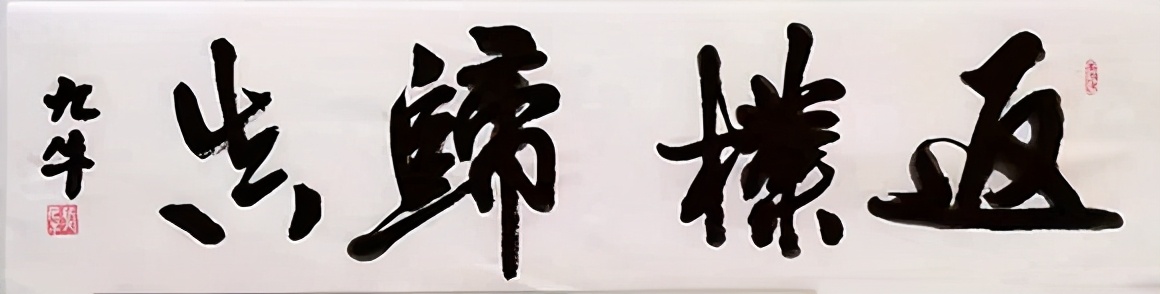 返樸歸真
九牛